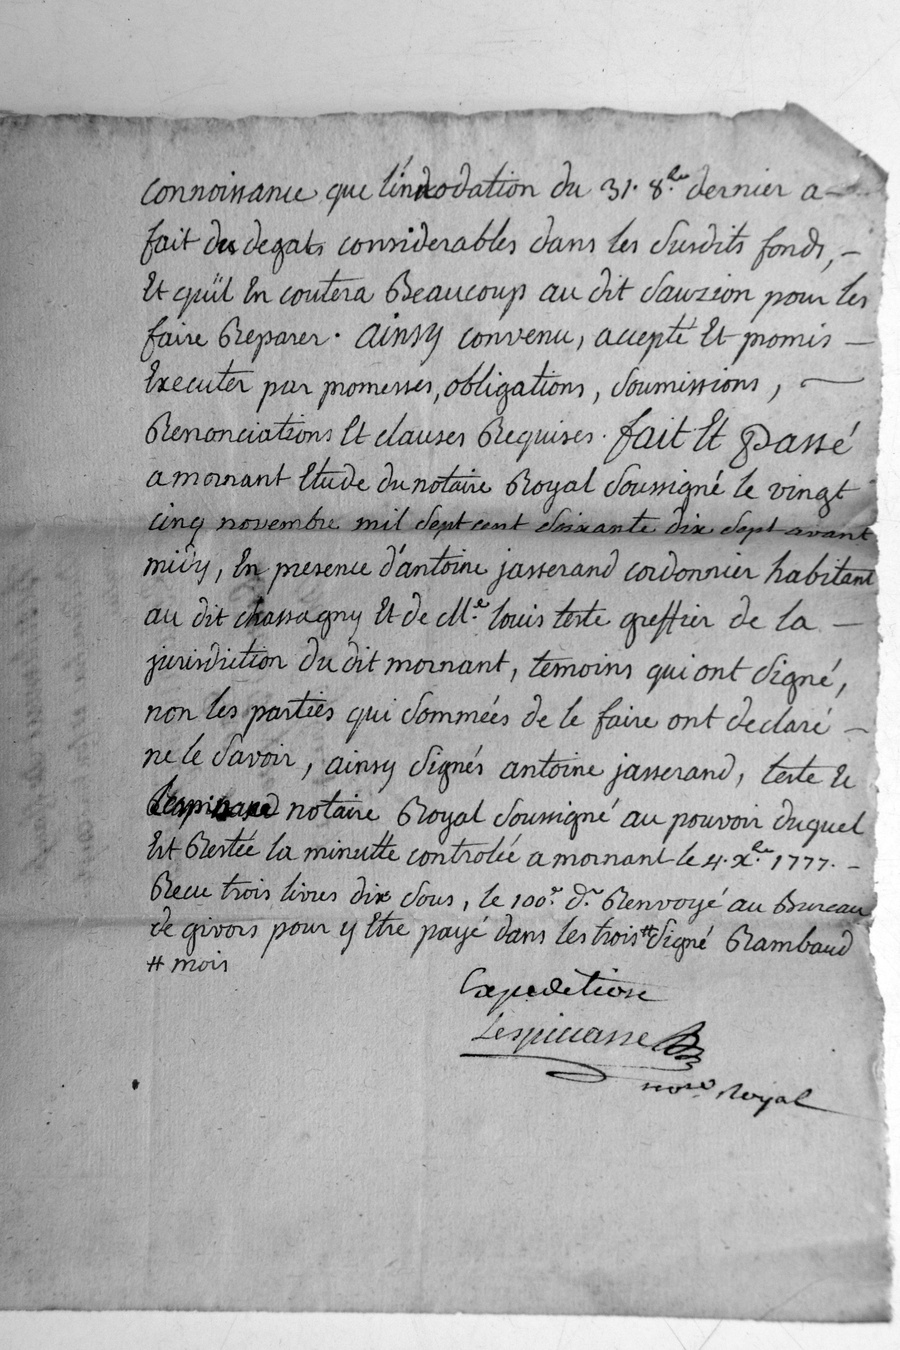 connoissance que l'inodation du 31. 8.bre dernier a —
fait des degats considerables dans les susdits fonds, —
Et qu'il En coutera Beaucoup au dit Sauzion pour les
faire Reparer. ainsy convenu, accepté Et promis —
Executer par promesses, obligations, soumissions, —
Renonciations Et clauses Requises. fait Et Passé
a mornant Etude du notaire Royal soussigné le vingt
cinq novembre mil sept cent soixante dix sept avant
midy, En presence d'antoine jasserand cordonnier habitant
au dit chassagny Et de M.e louis teste greffier de la —
jurisdiction du dit mornant, temoins qui ont signé,
non les parties qui sommées de le faire ont declaré —
ne le savoir, ainsy signés antoine jasserand, teste Et
notaire Royal soussigné au pouvoir duquel
Est Restée la minutte controlée a mornant le 4. x.bre 1777. —
Recu trois livres dix sous, le 100.e d.r Renvoyé au Bureau
de givors pour y Etre payé dans les trois # signé Rambaud
# mois
Expedition
Lespinasse
no.re Royal